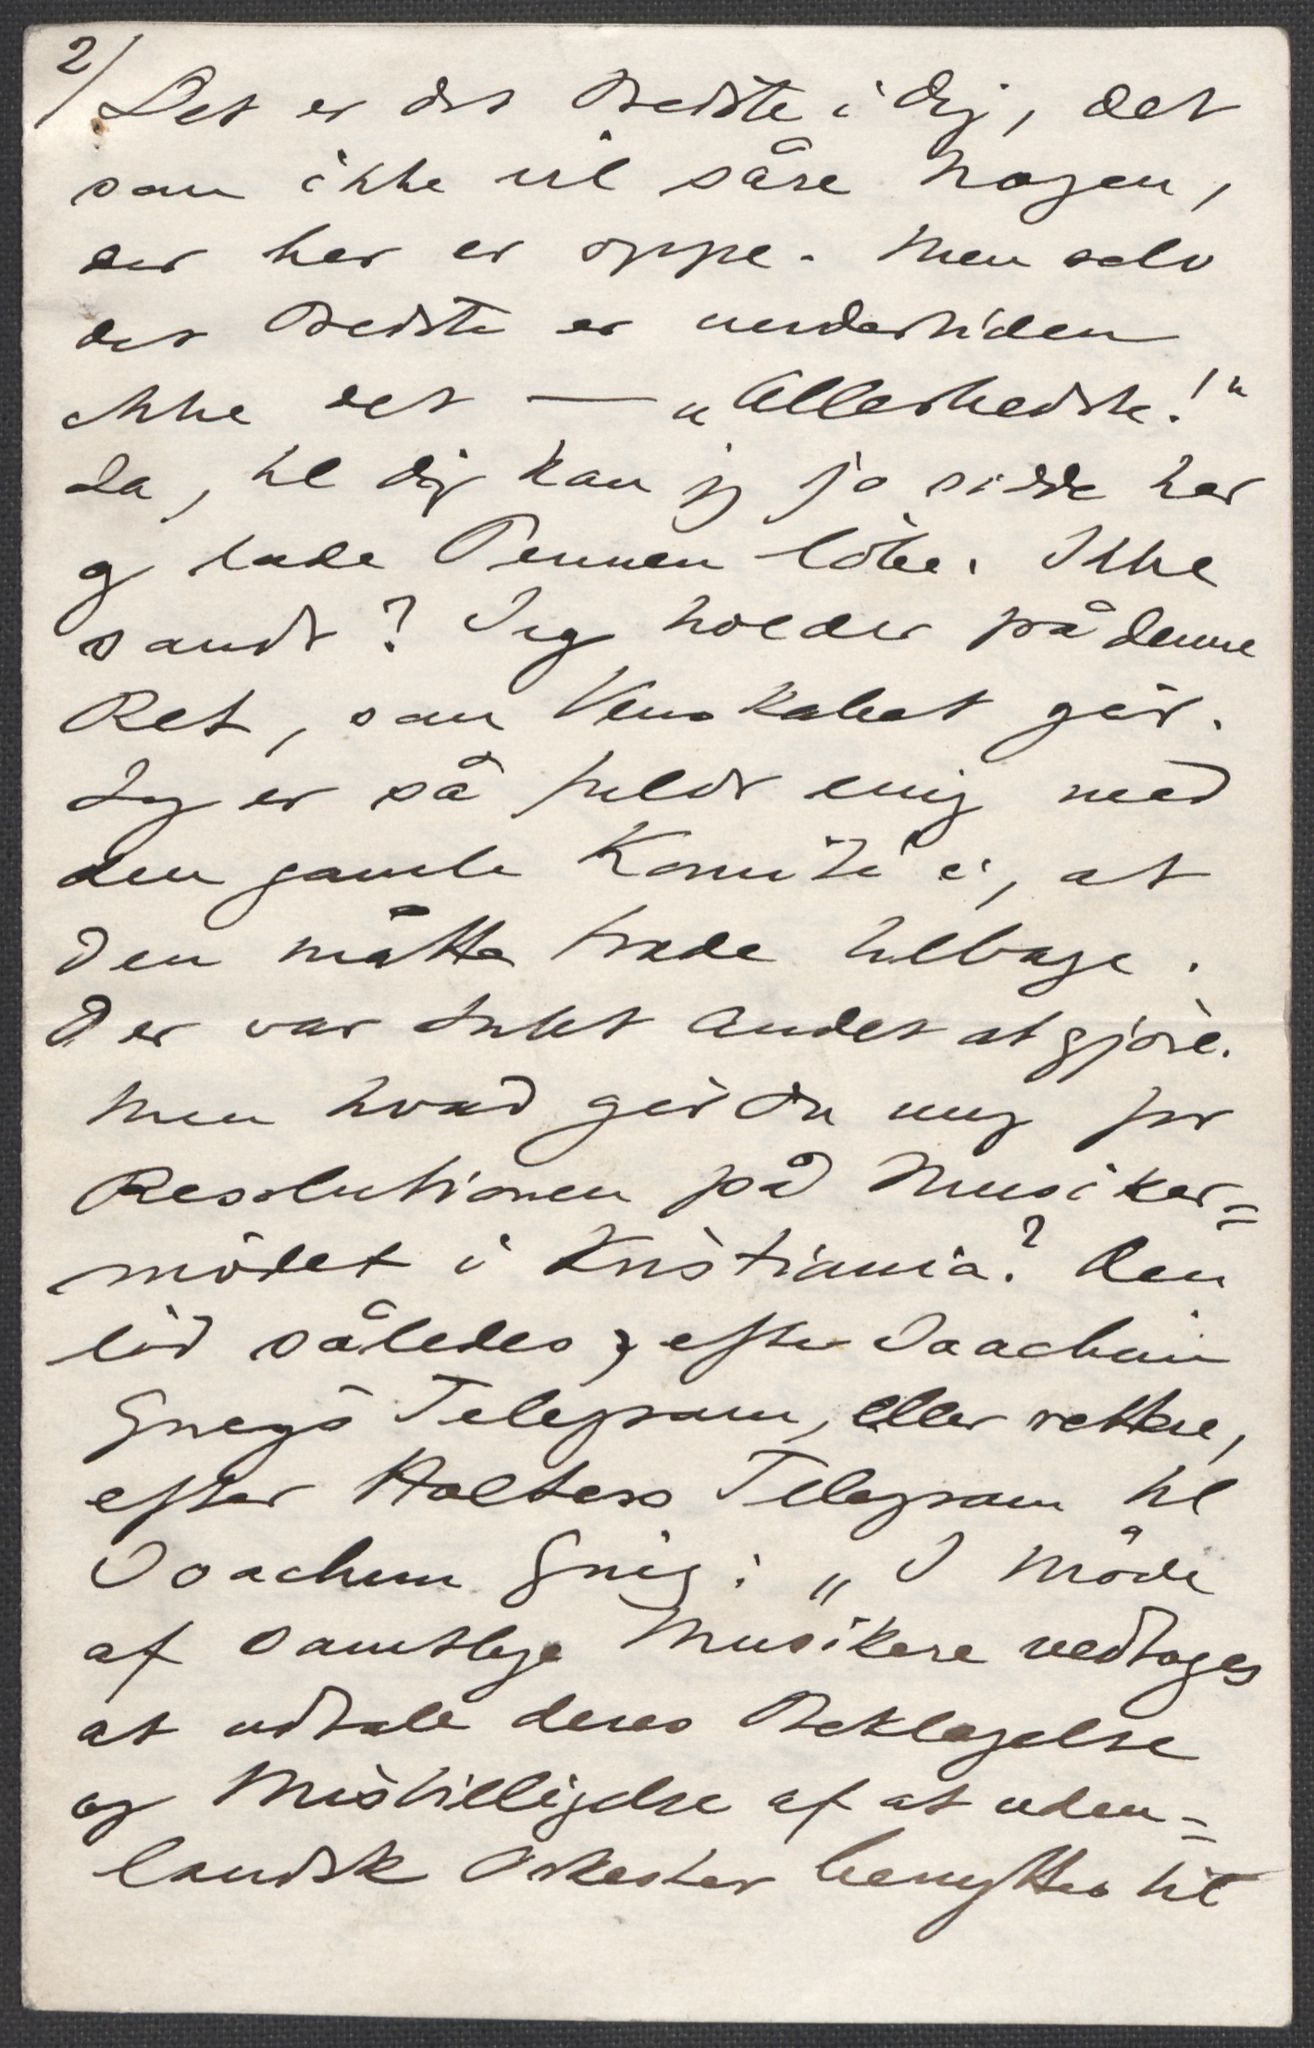 2/
Det er det Bedste i dig, det
som ikke vil såre Nogen,
der her er oppe. Men selv
det Bedste er undertiden
ikke det — „Allerbedste!“
Ja, til dig kan jeg jo sidde her
og lade Pennen löbe. Ikke
sandt? Jeg holder på denne
Ret, som Venskabet gir.
Jeg er så fuldt enig med
den gamle Komité i, at
den måtte træde tilbage.
Der var Intet Andet at gjöre.
Men hvad gir du mig for
Resolutionen på Musiker=
mödet i Kristiania? Den
löd således, efter Joachim
Griegs Telegram, eller rettere,
efter Holters Telegram til
Joachim Grieg: „I Möde
af samtlige Musikere vedtoges
at udtale deres Beklagelse
og Misbilligelse af at uden=
landsk Orkester benyttes til